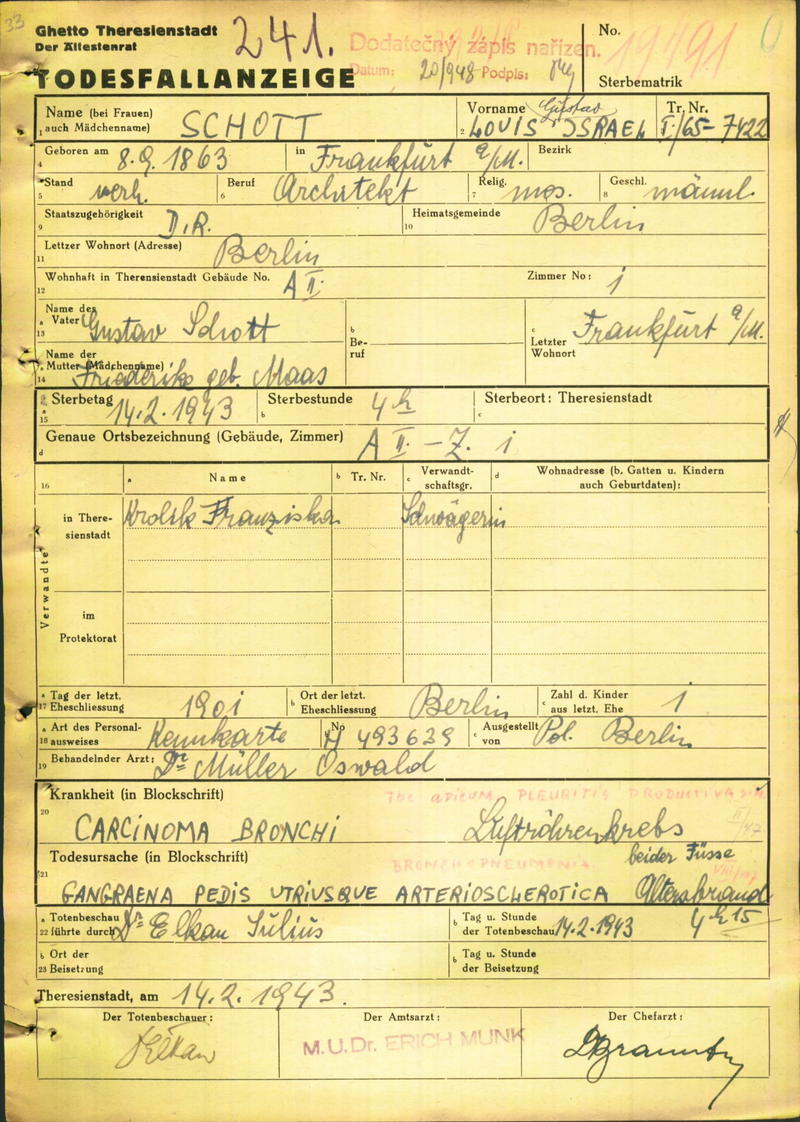 33
Ghetto Theresienstadt
Der Ältestenrat
241.
Dodatečný zápis nařízen.
Datum: 20/948 Podpis:
No. 19491
TODESFALLANZEIGE
Sterbematrik
Name (bei Frauen) auch Mädchenname) SCHOTT
Vorname Gustav LOUIS ISRAEL
Tr. Nr. I/65-7422
Geboren am 8.9.1863 in Frankfurt a/M. Bezirk
Stand verh. Beruf Architekt Relig. mos. Geschl. männl.
Staatszugehörigkeit D.R. Heimatsgemeinde Berlin
Lettzer Wohnort (Adresse) Berlin
Wohnhaft in Therensienstadt Gebäude No. A II. Zimmer No: 1
Name des Vater Gustav Schott Be-ruf Letzter Wohnort Frankfurt a/M.
Name der Mutter (Mädchenname) Friederike geb. Maas
Sterbetag 14.2.1943 Sterbestunde 4 h Sterbeort: Theresienstadt
Genaue Ortsbezeichnung (Gebäude, Zimmer) A II. - Z. 1
16 a Name b Tr. Nr. c Verwandt-schaftsgr. d Wohnadresse (b. Gatten u. Kindern auch Geburtdaten):
Verwandte
in There-sienstadt Krolik Franziska Schwägerin
im Protektorat
Tag der letzt. Eheschliessung 1901 Ort der letzt. Eheschliessung Berlin Zahl d. Kinder aus letzt. Ehe 1
Art des Personal-ausweises Kennkarte No A 493639 Ausgestellt von Pol. Berlin
Behandelnder Arzt: Dr. Müller Oswald
Krankheit (in Blockschrift) Tbc apicum PLEURITIS PRODUCTIVA
CARCINOMA BRONCHI Luftröhrenkrebs
Todesursache (in Blockschrift) BRONCHOPNEUMONIA. beider Füsse
GANGRAENA PEDIS UTRIUSQUE ARTERIOSCLEROTICA Altersbrand
Totenbeschau führte durch Dr. Elkan Julius Tag u. Stunde der Totenbeschau 14.2.1943 4 h 15
Ort der Beisetzung Tag u. Stunde der Beisetzung
Theresienstadt, am 14.2.1943.
Der Totenbeschauer: Der Amtsarzt: Der Chefarzt:
Elkan M.U.Dr. ERICH MUNK